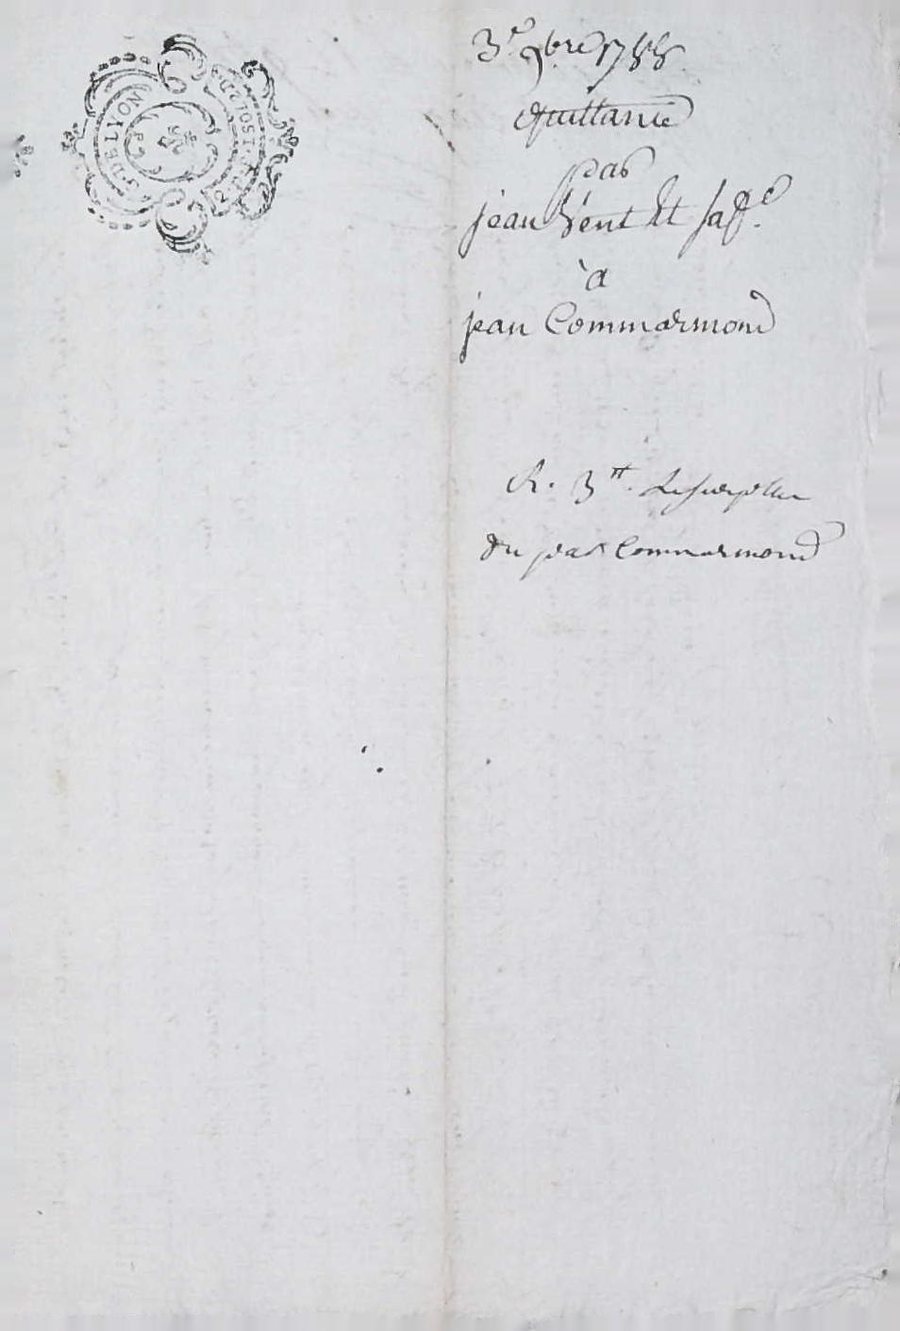 DE LYON
3e 9bre 1788
quittance
par
jean Vent et sa fe
à
jean Commarmond
R. 3tt.
du jean Commarmond